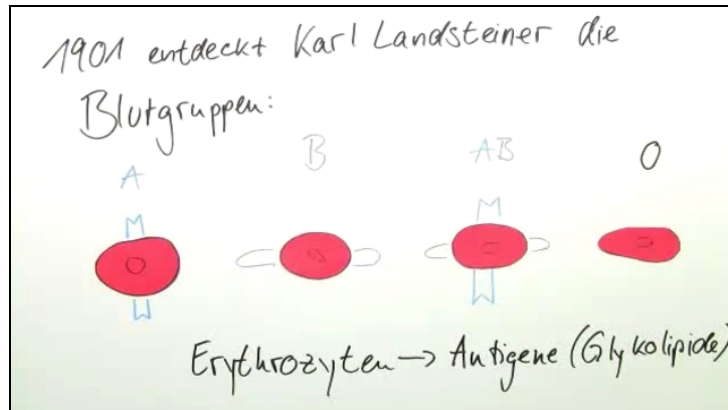 1901 entdeckt Karl Landsteiner die
Blutgruppen:
A B AB O
Erythrozyten → Antigene (Glykolipide)